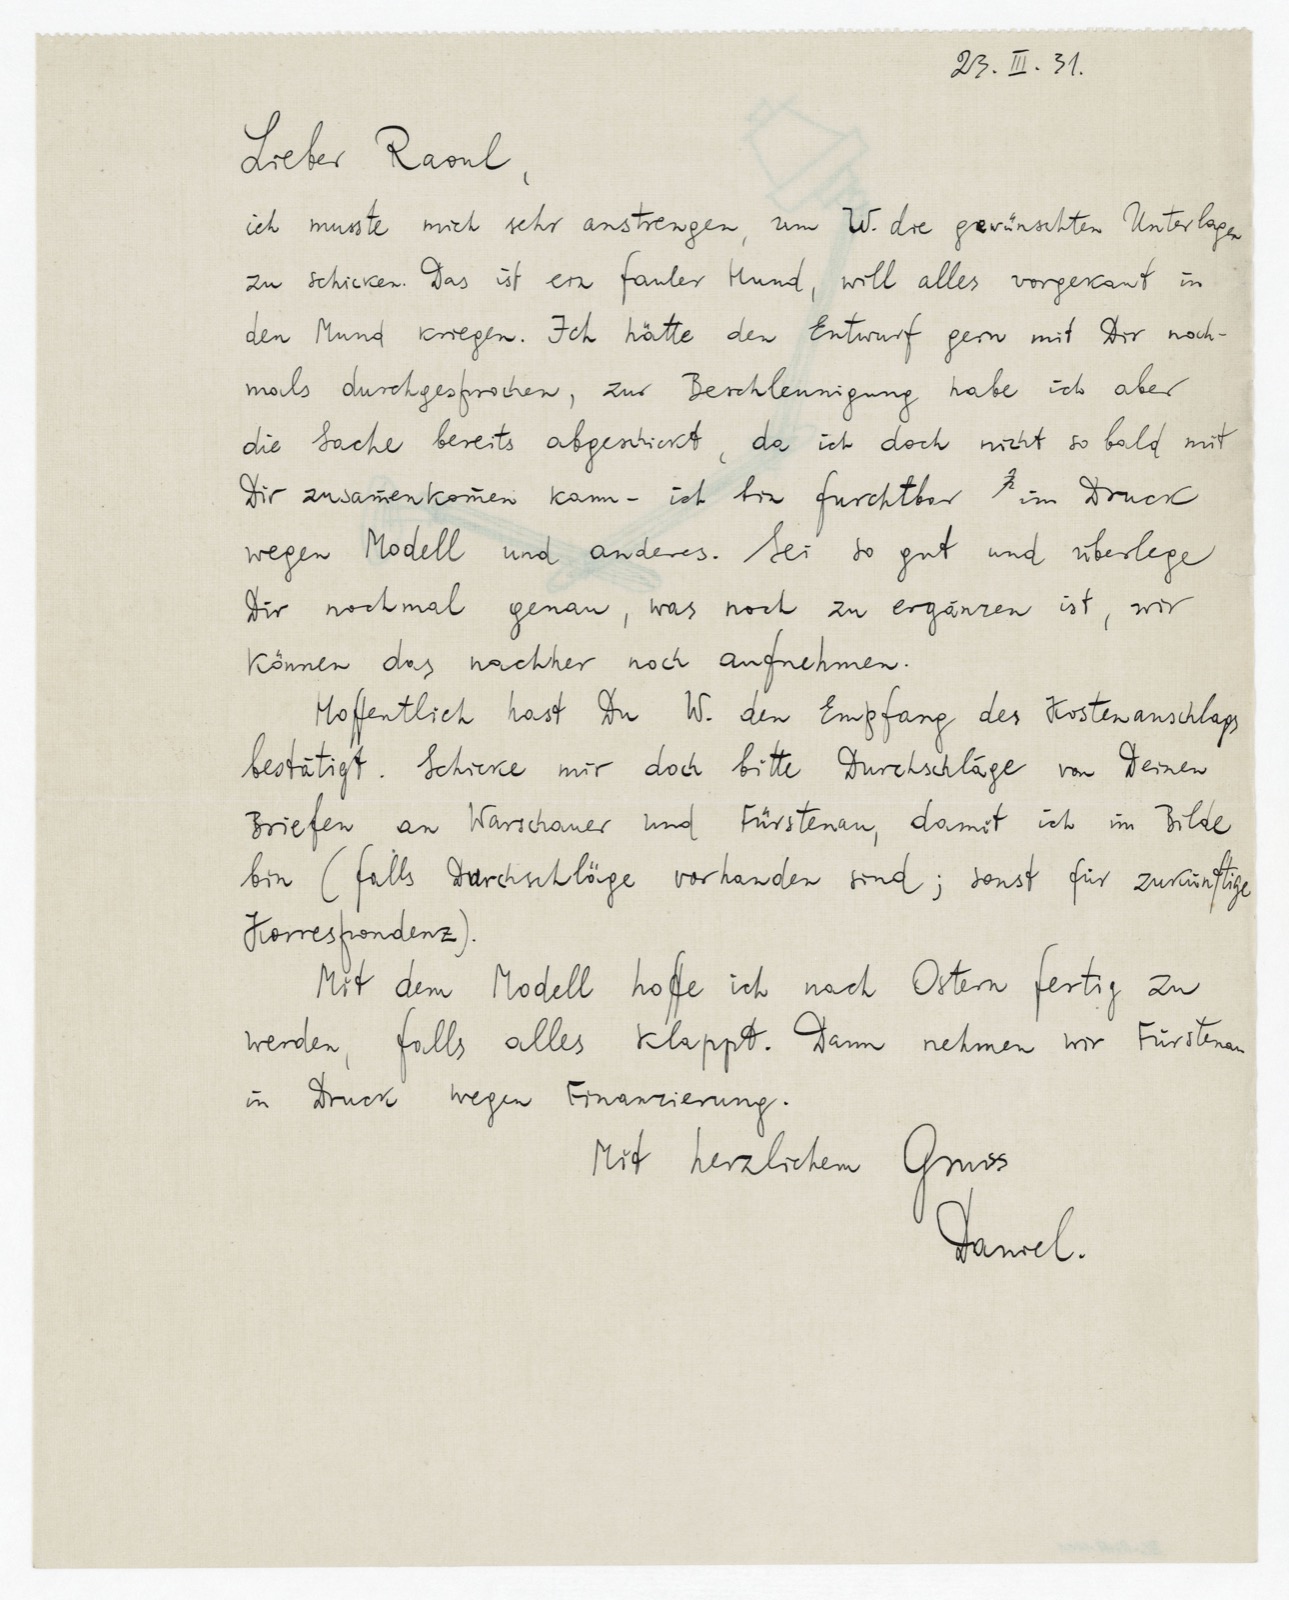 23. III. 31.
Lieber Raoul,
ich musste mich sehr anstrengen, um W. die gewünschten Unterlagen
zu schicken. Das ist ein fauler Hund, will alles vorgekaut in
den Mund kriegen. Ich hätte den Entwurf gern mit Dir noch-
mals durchgesprochen, zur Beschleunigung habe ich aber
die Sache bereits abgeschickt, da ich doch nicht so bald mit
Dir zusam̅enkom̅en kann - ich bin furchtbar im Druck
wegen Modell und anderes. Sei so gut und überlege
Dir nochmal genau, was noch zu ergänzen ist, wir
können das nachher noch aufnehmen.
Hoffentlich hast Du W. den Empfang des Kostenanschlags
bestätigt. Schicke mir doch bitte Durchschläge von Deinen
Briefen an Warschauer und Fürstenau, damit ich im Bilde
bin (falls Durchschläge vorhanden sind; sonst für zukünftige
Korrespondenz).
Mit dem Modell hoffe ich nach Ostern fertig zu
werden, falls alles klappt. Dann nehmen wir Fürstenau
in Druck wegen Finanzierung.
Mit herzlichem Gruss
Daniel.